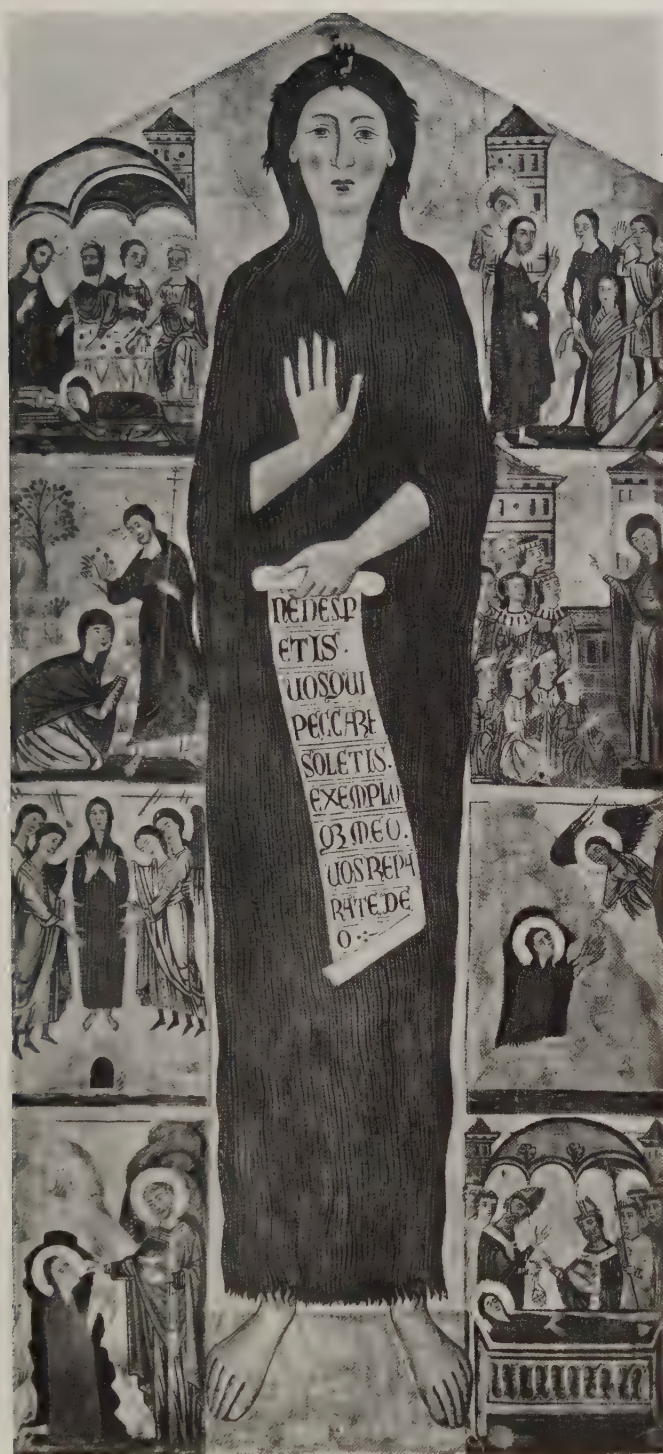 NEDESP
ETIS·
UOSQUI
PECCARE
SOLETIS·
EXEMPLO
Q3 MEO·
UOS REPA
RATE DE
O⁘